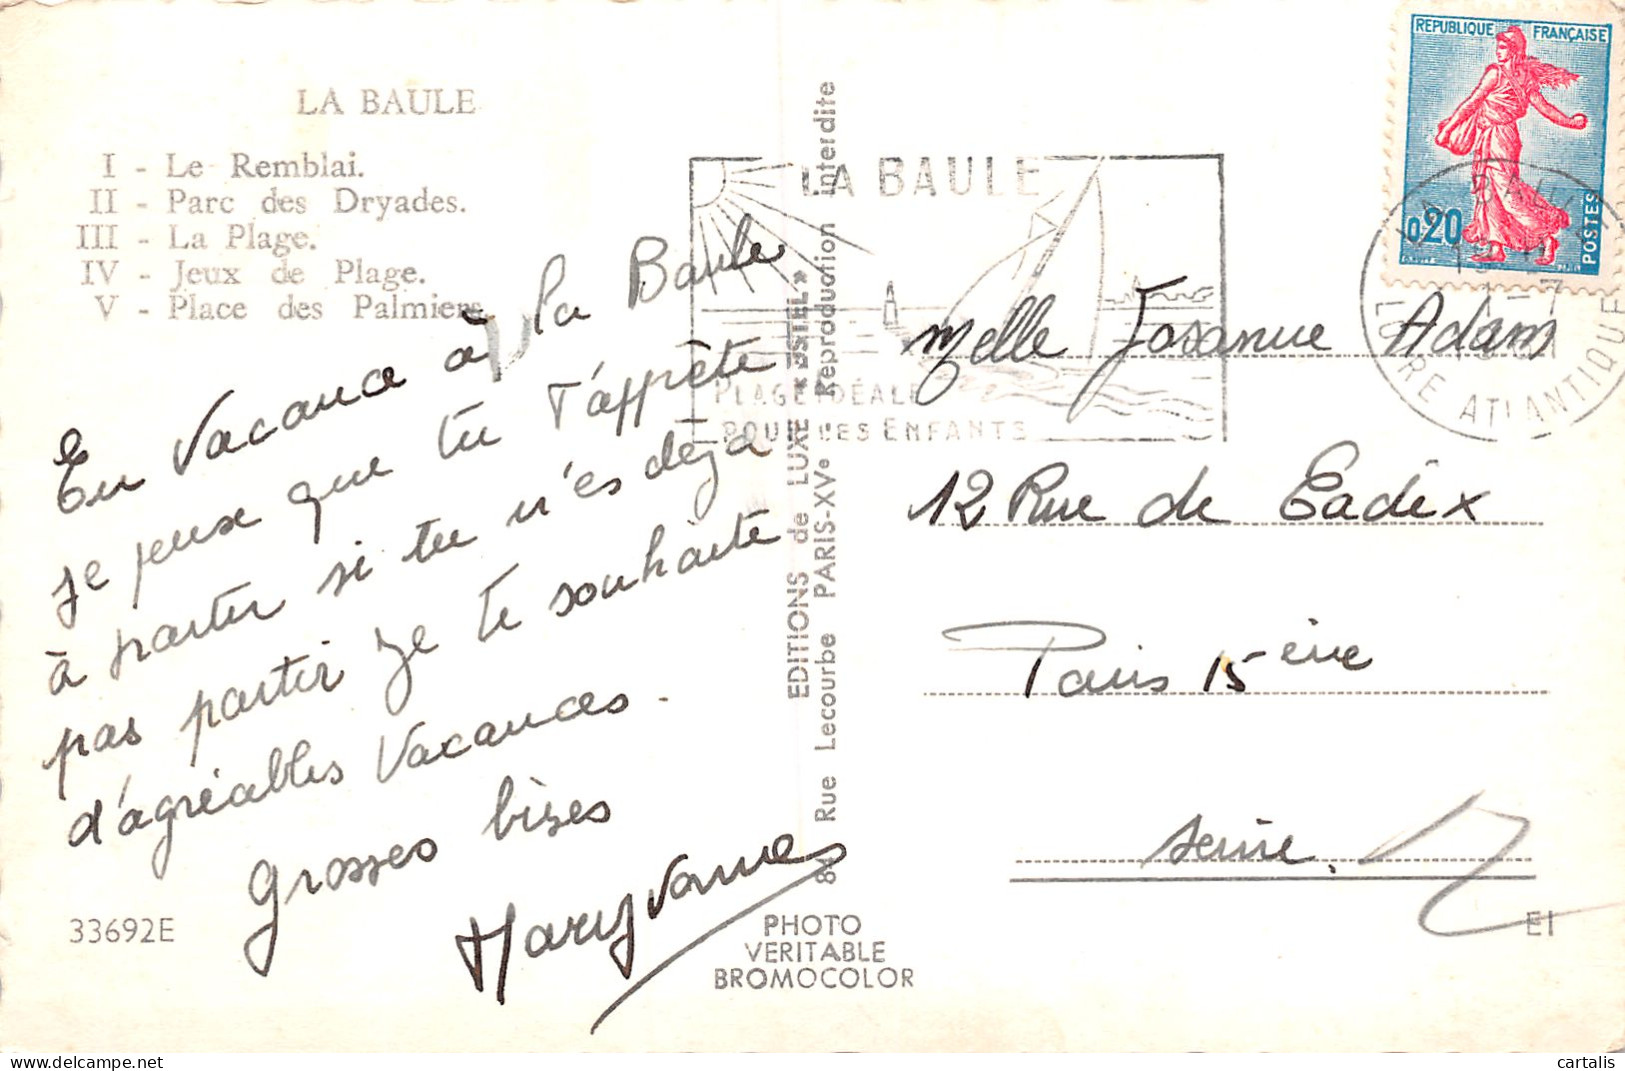 LA BAULE
I - Le Remblai.
II - Parc des Dryades.
III - La Plage.
IV - Jeux de Plage.
V - Place des Palmiers.
En Vacance à la Baule
je pense que tu t'apprête
à partir si tu n'es déjà
pas partir je te souhaite
d'agréables Vacances.
Grosses bises
Maryvonne
33692E
EDITIONS de LUXE « ESTEL »
84 Rue Lecourbe PARIS-XVe - Reproduction Interdite
PHOTO
VERITABLE
BROMOCOLOR
LA BAULE
PLAGE IDÉALE
POUR LES ENFANTS
REPUBLIQUE FRANÇAISE
0,20
POSTES
LA BAULE
LOIRE ATLANTIQUE
Melle Josanne Adam
12 Rue de Cadix
Paris 15 ème
Seine.
EI
cartalis